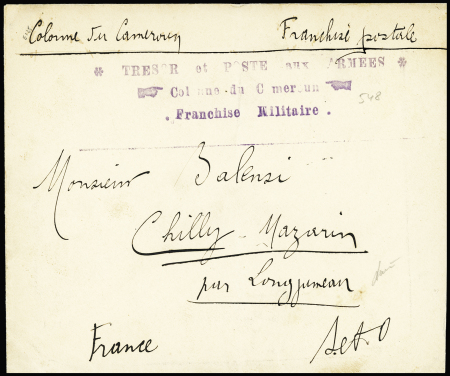 Colonne du Cameroun Franchise postale
* TRESOR et POSTE aux ARMEES *
Colonne du Cameroun
. Franchise Militaire .
548
Monsieur Balensi
Chilly-Mazarin
par Longjumeau
France S.et.O